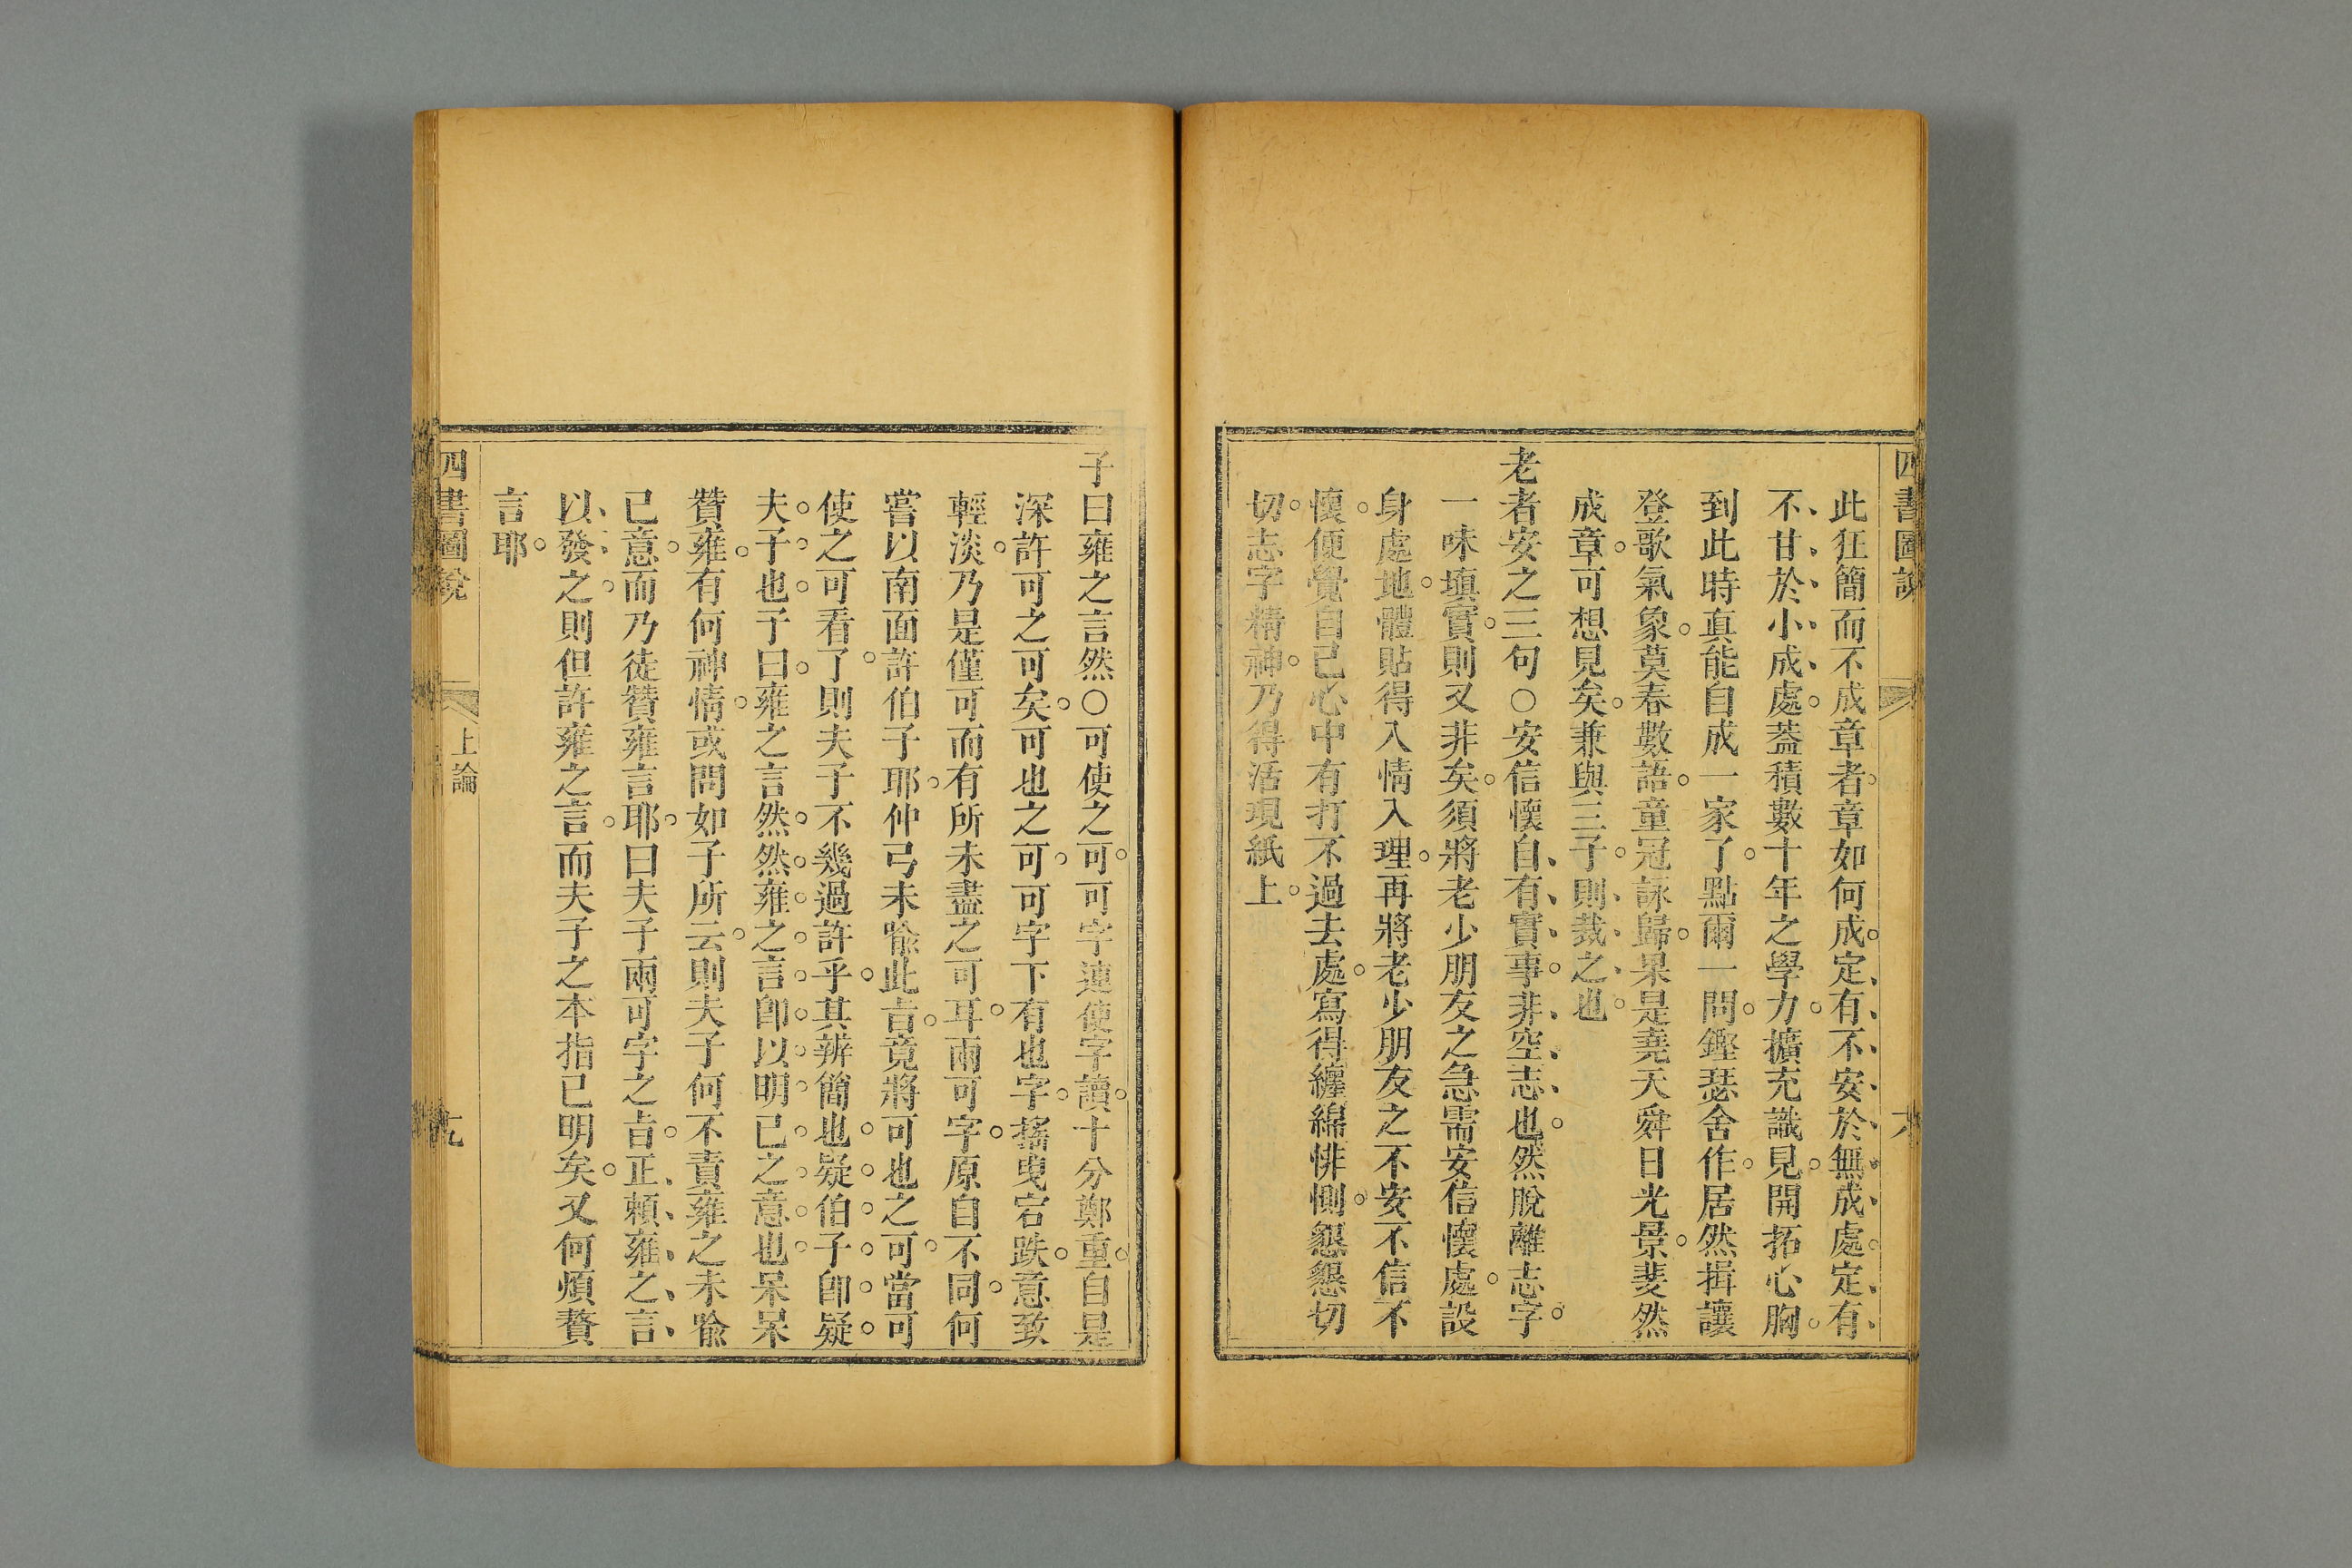 四書圖說
此狂簡而不成章者章如何成定有不安於無成處定有
不甘於小成處葢積數十年之學力擴充識見開拓心胸
到此時真能自成一家了點爾一問鏗瑟舍作居然揖讓
登歌氣象莫春數語童冠詠歸果是堯天舜日光景斐然
成章可想見矣兼與三子則裁之也
老者安之三句○安信懷自有實事非空志也然脫離志字
一味塡實則又非矣須將老少朋友之急需安信懷處設
身處地體貼得入情入理再將老少朋友之不安不信不
懷便覺自己心中有打不過去處寫得纏綿悱惻懇懇切
切志字精神乃得活現紙上
子曰雍之言然○可使之可可字連使字讀十分鄭重自是
深許可之可矣可也之可可字下有也字搖曳宕跌意致
輕淡乃是僅可而有所未盡之可耳兩可字原自不同何
嘗以南面許伯子耶仲弓未喩此旨竟將可也之可當可
使之可看了則夫子不幾過許乎其辨簡也疑伯子卽疑
夫子也子曰雍之言然然雍之言卽以明己之意也呆呆
贊雍有何神情或問如子所云則夫子何不責雍之未喩
已意而乃徒贊雍言耶曰夫子兩可字之旨正頼雍之言
以發之則但許雍之言而夫子之本指已明矣又何煩贅
言耶
四書圖說
上論